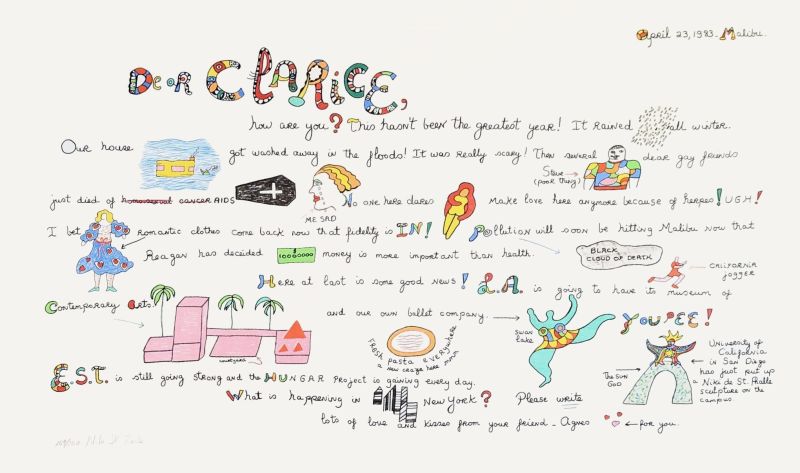 April 23, 1983 - Malibu.
Dear CLARiCE,
how are you? This hasn't been the greatest year! It RAINED all winter.
Our house got washed away in the floods! It was really scary! Then several dear gay friends
Steve
(poor thing)
just died of homosexual CANCER AIDS No one here dares Make love here anymore because of herpes! UGH!
ME SAD
I bet romantic clothes come back now that fidelity is IN! Pollution will soon be hitting Malibu now that
Reagan has decided 10000000 money is more important than health.
BLACK
CLOUD OF DEATH
Here at last is some good news! L.A. is going to have its museum of
CALIFORNIA
jOGGER
Contemporary Arts! and our own ballet company.
Swan
Lake
YOUPEE!
FRESH pasta EVERYwhere
a new craze here mmm
University of
California
in San Diego
has just put up
a Niki de St. Phalle
sculpture on the
campus.
The SUN
GOD
E.S.T. is still going strong and the HUNGAR Project is gaining every day.
What is happening in NEW YORK? Please write
lots of love and kisses from your friend - Agnes for you.